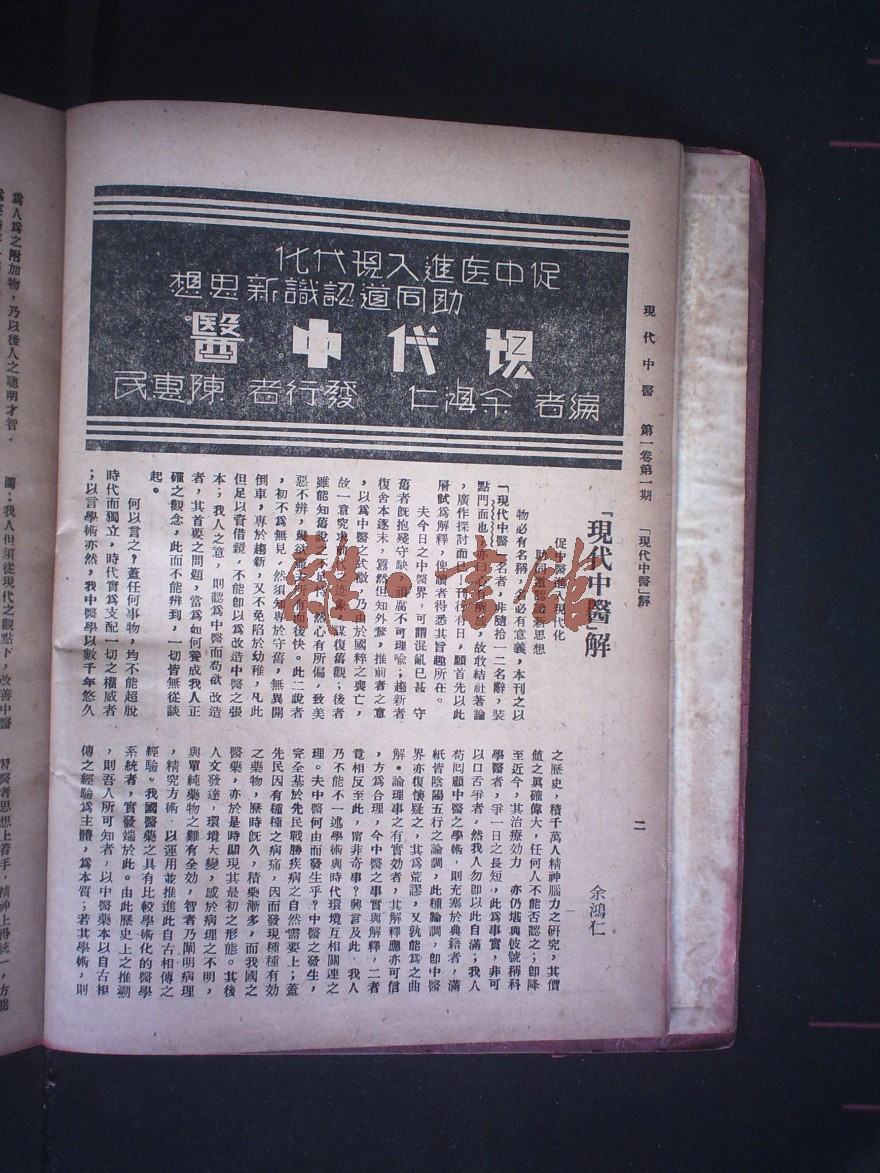 現代中醫 第一卷第一期 「現代中醫」解 二
促中医進入現代化
助同道認識新思想
現代中醫
編者 余鴻仁 發行者 陳惠民
「現代中醫」解
余鴻仁
促中醫進入現代化
助同道認識新思想
物必有名稱，名必有意義，本刊之以
「現代中醫」名者，非隨拾一二名辭，裝
點門面也，亦曰心有所感，故敢結社著論
，廣作探討而已。刊行有日，願首先以此
層試爲解釋，俾讀者得悉其旨趣所在。
夫今日之中醫界，可謂混亂已甚 守
舊者既抱殘守缺，頑腐不可理喻；趨新者
復舍本逐末，囂然但知外鶩，推前者之意
，以爲中醫之式微，乃由於國粹之喪亡，
故一意究求前代之迹象，謀復舊觀；後者
雖能知舊說之不足恃，然心有所偏，致美
惡不辨，幾欲盡去所有而後快。此二說者
，初不爲無見，然須知專於守舊，無異開
倒車，專於趨新，又不免陷於幼稚，凡此
但足以資借鏡，不能卽以爲改造中醫之張
本；我人之意，則認爲中醫而苟欲改造
者，其首要之問題，當爲如何養成我人正
確之觀念，此而不能辨到，一切皆無從談
起。
何以言之？蓋任何事物，均不能超脫
時代而獨立，時代實爲支配一切之權威者
；以言學術亦然，我中醫學以數千年悠久
之歷史，積千萬人精神腦力之研究，其價
値之眞確偉大，任何人不能否認之；卽降
至近今，其治療効力 亦仍堪與彼號稱科
學醫者，爭一日之長短，此爲事實，非可
以口舌爭者，然我人勿卽以此自滿；我人
苟囘顧中醫之學術，則充塞於典籍者，滿
紙皆陰陽五行之論調，此種論調，卽中醫
界亦復懷疑之，其爲荒謬，又孰能爲之曲
解。論理事之有實効者，其解釋應亦可信
，方爲合理，今中醫之事實與解釋，二者
竟相反至此，甯非奇事？興言及此 我人
乃不能不一述學術與時代環境互相關連之
理。夫中醫何由而發生乎？中醫之發生，
完全基於先民戰勝疾病之自然需要上；蓋
先民因有種種之病痛，因而發現種種有効
之藥物，歷時旣久，積藥漸多，而我國之
醫藥，亦於是時顯現其最初之形態。其後
人文發達，環境大變，感於病理之不明，
與單純藥物之難有全効，智者乃闡明病理
，精究方術，以運用並推進此自古相傳之
經驗。我國醫藥之具有比較學術化的醫學
系統者，實發端於此。由此歷史上之推溯
，則吾人所可知者，以中醫藥本以自古相
傳之經驗爲主體，爲本質；若其學術，則
爲人爲之附加物，乃以後人之聰明才智，
圖；我人但須從現代之觀點下，改善中醫
雜·書館